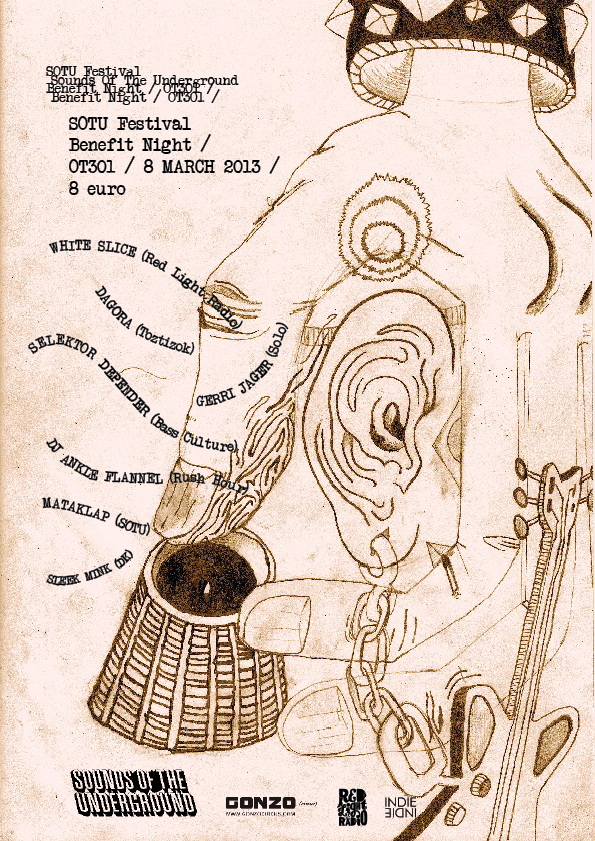 SOTU Festival
Sounds Of The Underground
Benefit Night / OT301 /
Benefit Night / OT301 /
SOTU Festival
Benefit Night /
OT301 / 8 MARCH 2013 /
8 euro
WHITE SLICE (Red Light Radio)
DAGORA (Toztizok)
GERRI JAGER (Solo)
SELEKTOR DEPENDER (Bass Culture)
DJ ANKLE FLANNEL (Rush Hour)
MATAKLAP (SOTU)
SLEEK MINK (DK)
SOUNDS OF THE
UNDERGROUND
GONZO (circus)
WWW.GONZOCIRCUS.COM
RADIO
INDIE
INDIE